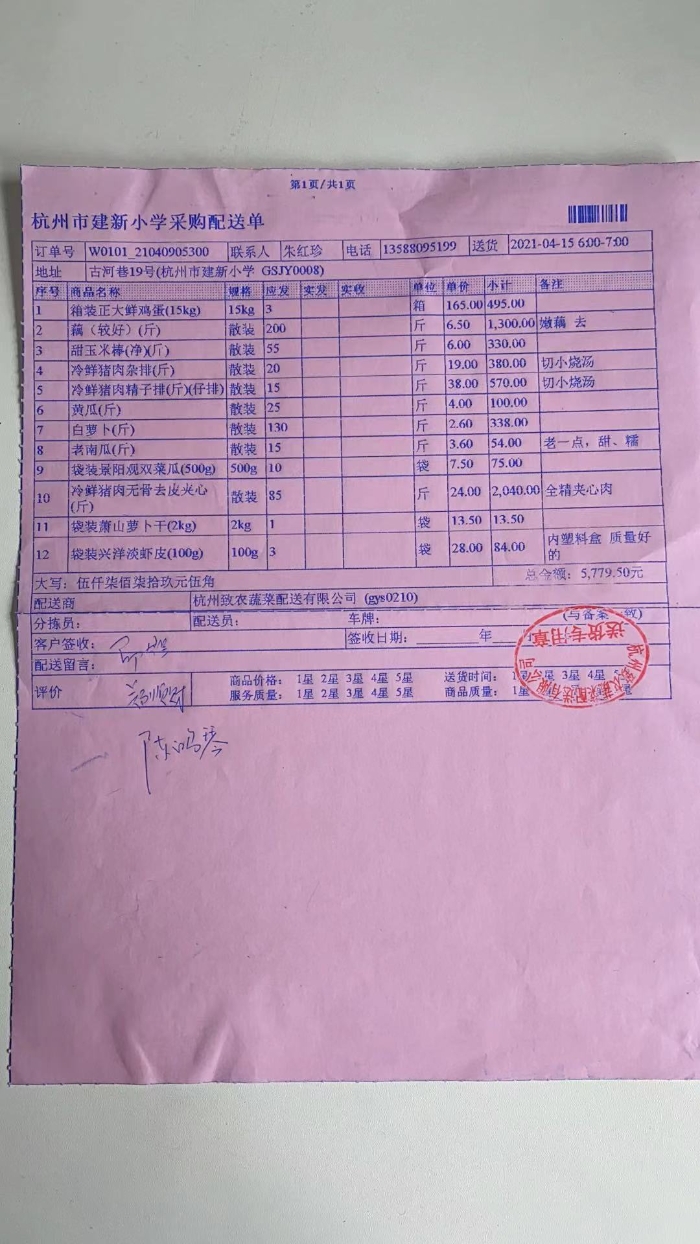 第1页/共1页
杭州市建新小学采购配送单
订单号 W0101_21040905300 联系人 朱红珍 电话 13588095199 送货 2021-04-15 6:00-7:00
地址 古河巷19号(杭州市建新小学 GSJY0008)
序号 商品名称 规格 应发 实发 实收 单位 单价 小计 备注
1 箱装正大鲜鸡蛋(15kg) 15kg 3 箱 165.00 495.00
2 藕（较好）(斤) 散装 200 斤 6.50 1,300.00 嫩藕 去
3 甜玉米棒(净)(斤) 散装 55 斤 6.00 330.00
4 冷鲜猪肉杂排(斤) 散装 20 斤 19.00 380.00 切小烧汤
5 冷鲜猪肉精子排(斤)(仔排) 散装 15 斤 38.00 570.00 切小烧汤
6 黄瓜(斤) 散装 25 斤 4.00 100.00
7 白萝卜(斤) 散装 130 斤 2.60 338.00
8 老南瓜(斤) 散装 15 斤 3.60 54.00 老一点，甜、糯
9 袋装景阳观双菜瓜(500g) 500g 10 袋 7.50 75.00
10 冷鲜猪肉无骨去皮夹心(斤) 散装 85 斤 24.00 2,040.00 全精夹心肉
11 袋装萧山萝卜干(2kg) 2kg 1 袋 13.50 13.50
12 袋装兴洋淡虾皮(100g) 100g 3 袋 28.00 84.00 内塑料盒 质量好的
大写：伍仟柒佰柒拾玖元伍角 总金额：5,779.50元
配送商 杭州致农蔬菜配送有限公司 (gys0210)
分拣员： 配送员： 车牌： (与备案一致)
客户签收： 签收日期： 年
配送留言：
评价 商品价格： 1星 2星 3星 4星 5星 送货时间： 1星 2星 3星 4星 5星
服务质量： 1星 2星 3星 4星 5星 商品质量： 1星
送货专用章
陈鸿琴